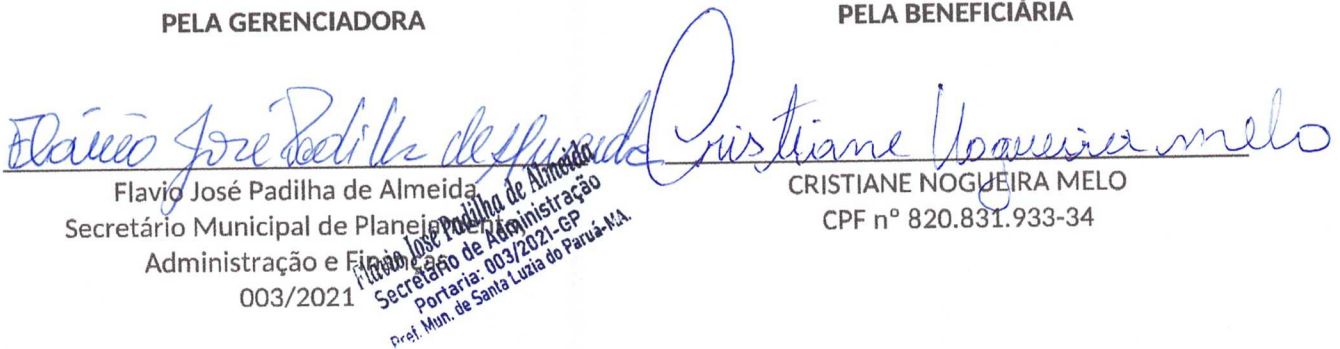 PELA GERENCIADORA
Flávio José Padilha de Almeida
Flavio José Padilha de Almeida
Secretário Municipal de Planejamento,
Administração e Finanças
003/2021
Flavio José Padilha de Almeida
Secretário de Administração
Portaria: 003/2021-GP
Pref. Mun. de Santa Luzia do Paruá-MA.
PELA BENEFICIÁRIA
Cristiane Nogueira melo
CRISTIANE NOGUEIRA MELO
CPF nº 820.831.933-34